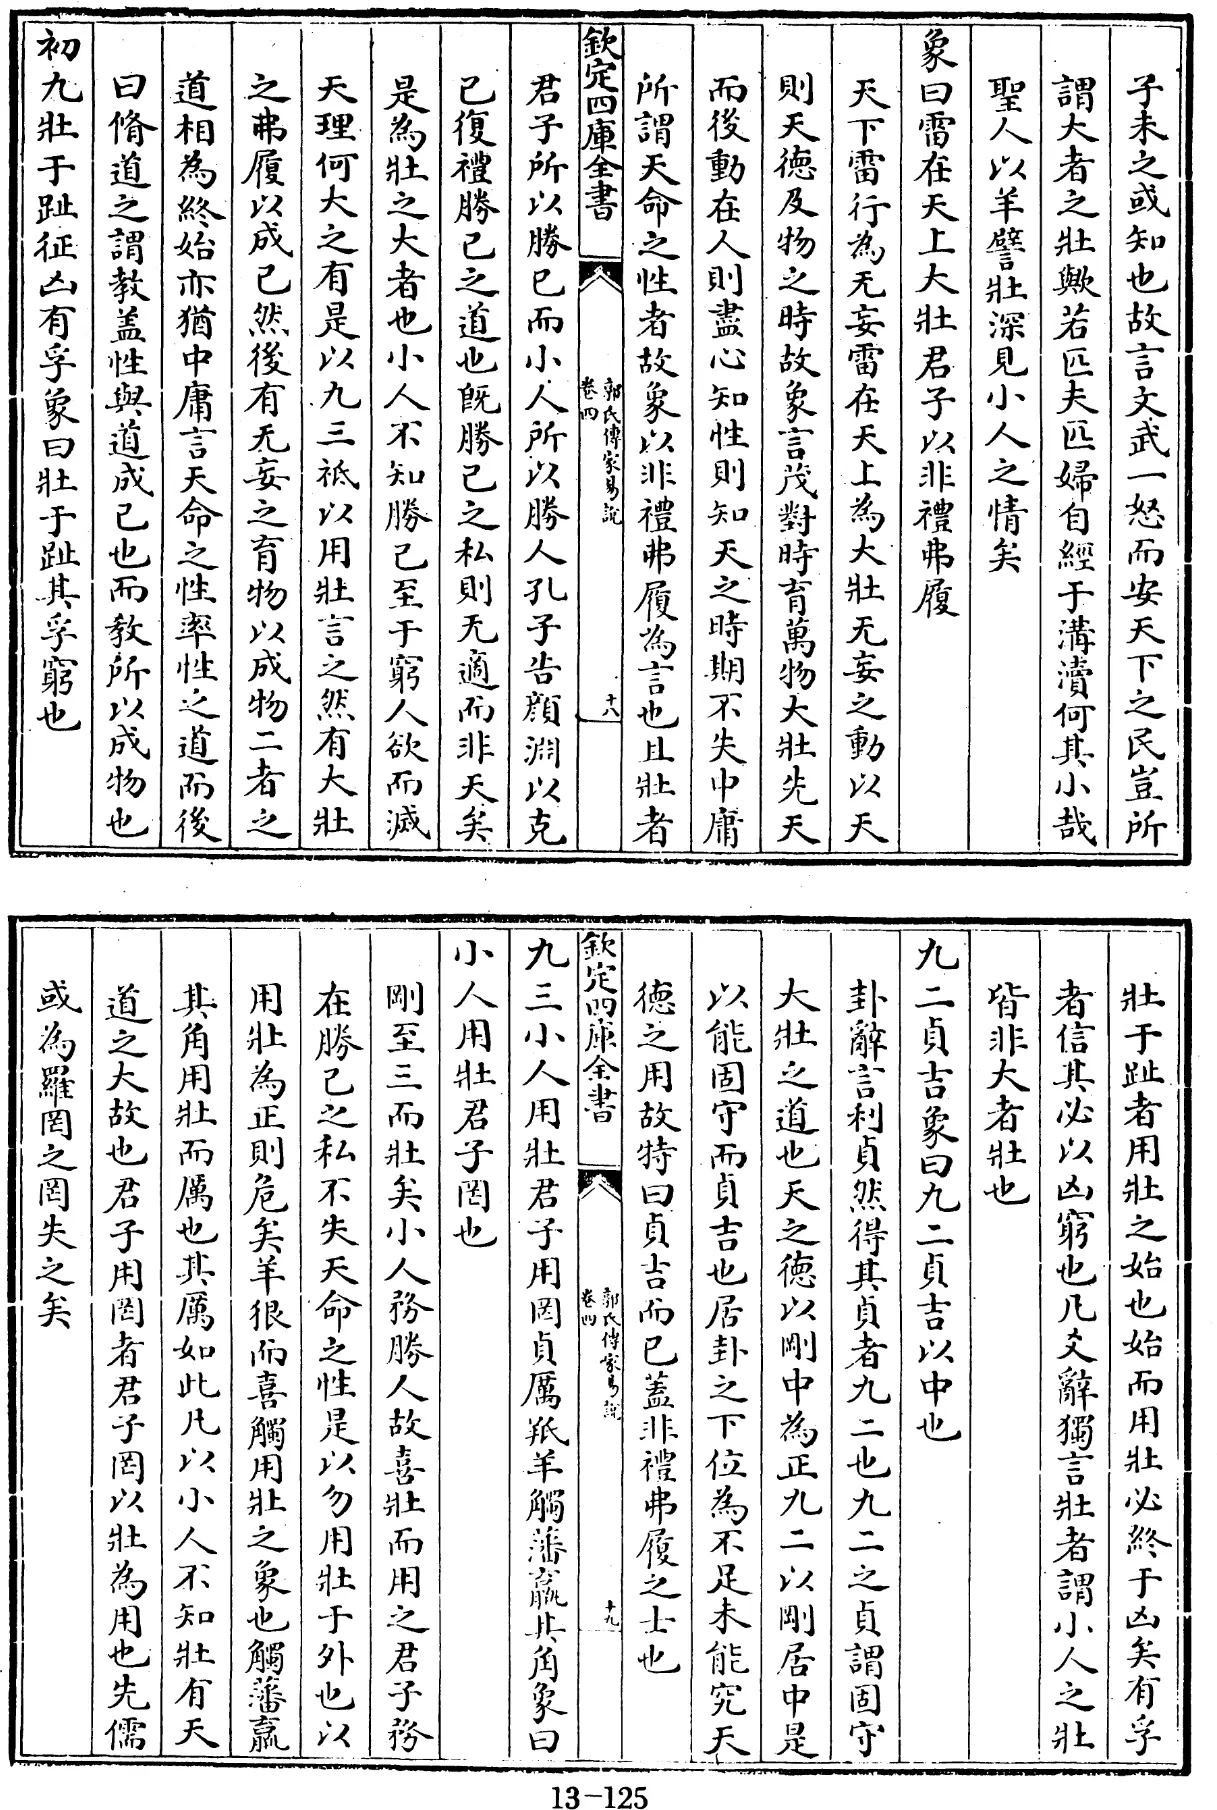 子未之或知也故言文武一怒而安天下之民豈所
謂大者之壯歟若匹夫匹婦自經于溝瀆何其小哉
聖人以羊譬壯深見小人之情矣
象曰雷在天上大壯君子以非禮弗履
天下雷行為无妄雷在天上為大壯无妄之動以天
則天德及物之時故象言茂對時育萬物大壯先天
而後動在人則盡心知性則知天之時期不失中庸
所謂天命之性者故象以非禮弗履為言也且壯者
欽定四庫全書
郭氏傳家易說
卷四
十八
君子所以勝己而小人所以勝人孔子告顏淵以克
己復禮勝己之道也旣勝己之私則无適而非天矣
是為壯之大者也小人不知勝己至于窮人欲而滅
天理何大之有是以九三祗以用壯言之然有大壯
之弗履以成己然後有无妄之育物以成物二者之
道相為終始亦猶中庸言天命之性率性之道而後
曰脩道之謂教盖性與道成己也而教所以成物也
初九壯于趾征凶有孚象曰壯于趾其孚窮也
壯于趾者用壯之始也始而用壯必終于凶矣有孚
者信其必以凶窮也凡爻辭獨言壯者謂小人之壯
皆非大者壯也
九二貞吉象曰九二貞吉以中也
卦辭言利貞然得其貞者九二也九二之貞謂固守
大壯之道也天之德以剛中為正九二以剛居中是
以能固守而貞吉也居卦之下位為不足未能究天
德之用故特曰貞吉而已蓋非禮弗履之士也
欽定四庫全書
郭氏傳家易說
卷四
十九
九三小人用壯君子用罔貞厲羝羊觸藩羸其角象曰
小人用壯君子罔也
剛至三而壯矣小人務勝人故喜壯而用之君子務
在勝己之私不失天命之性是以勿用壯于外也以
用壯為正則危矣羊狠而喜觸用壯之象也觸藩羸
其角用壯而厲也其厲如此凡以小人不知壯有天
道之大故也君子用罔者君子罔以壯為用也先儒
或為羅罔之罔失之矣
13-125